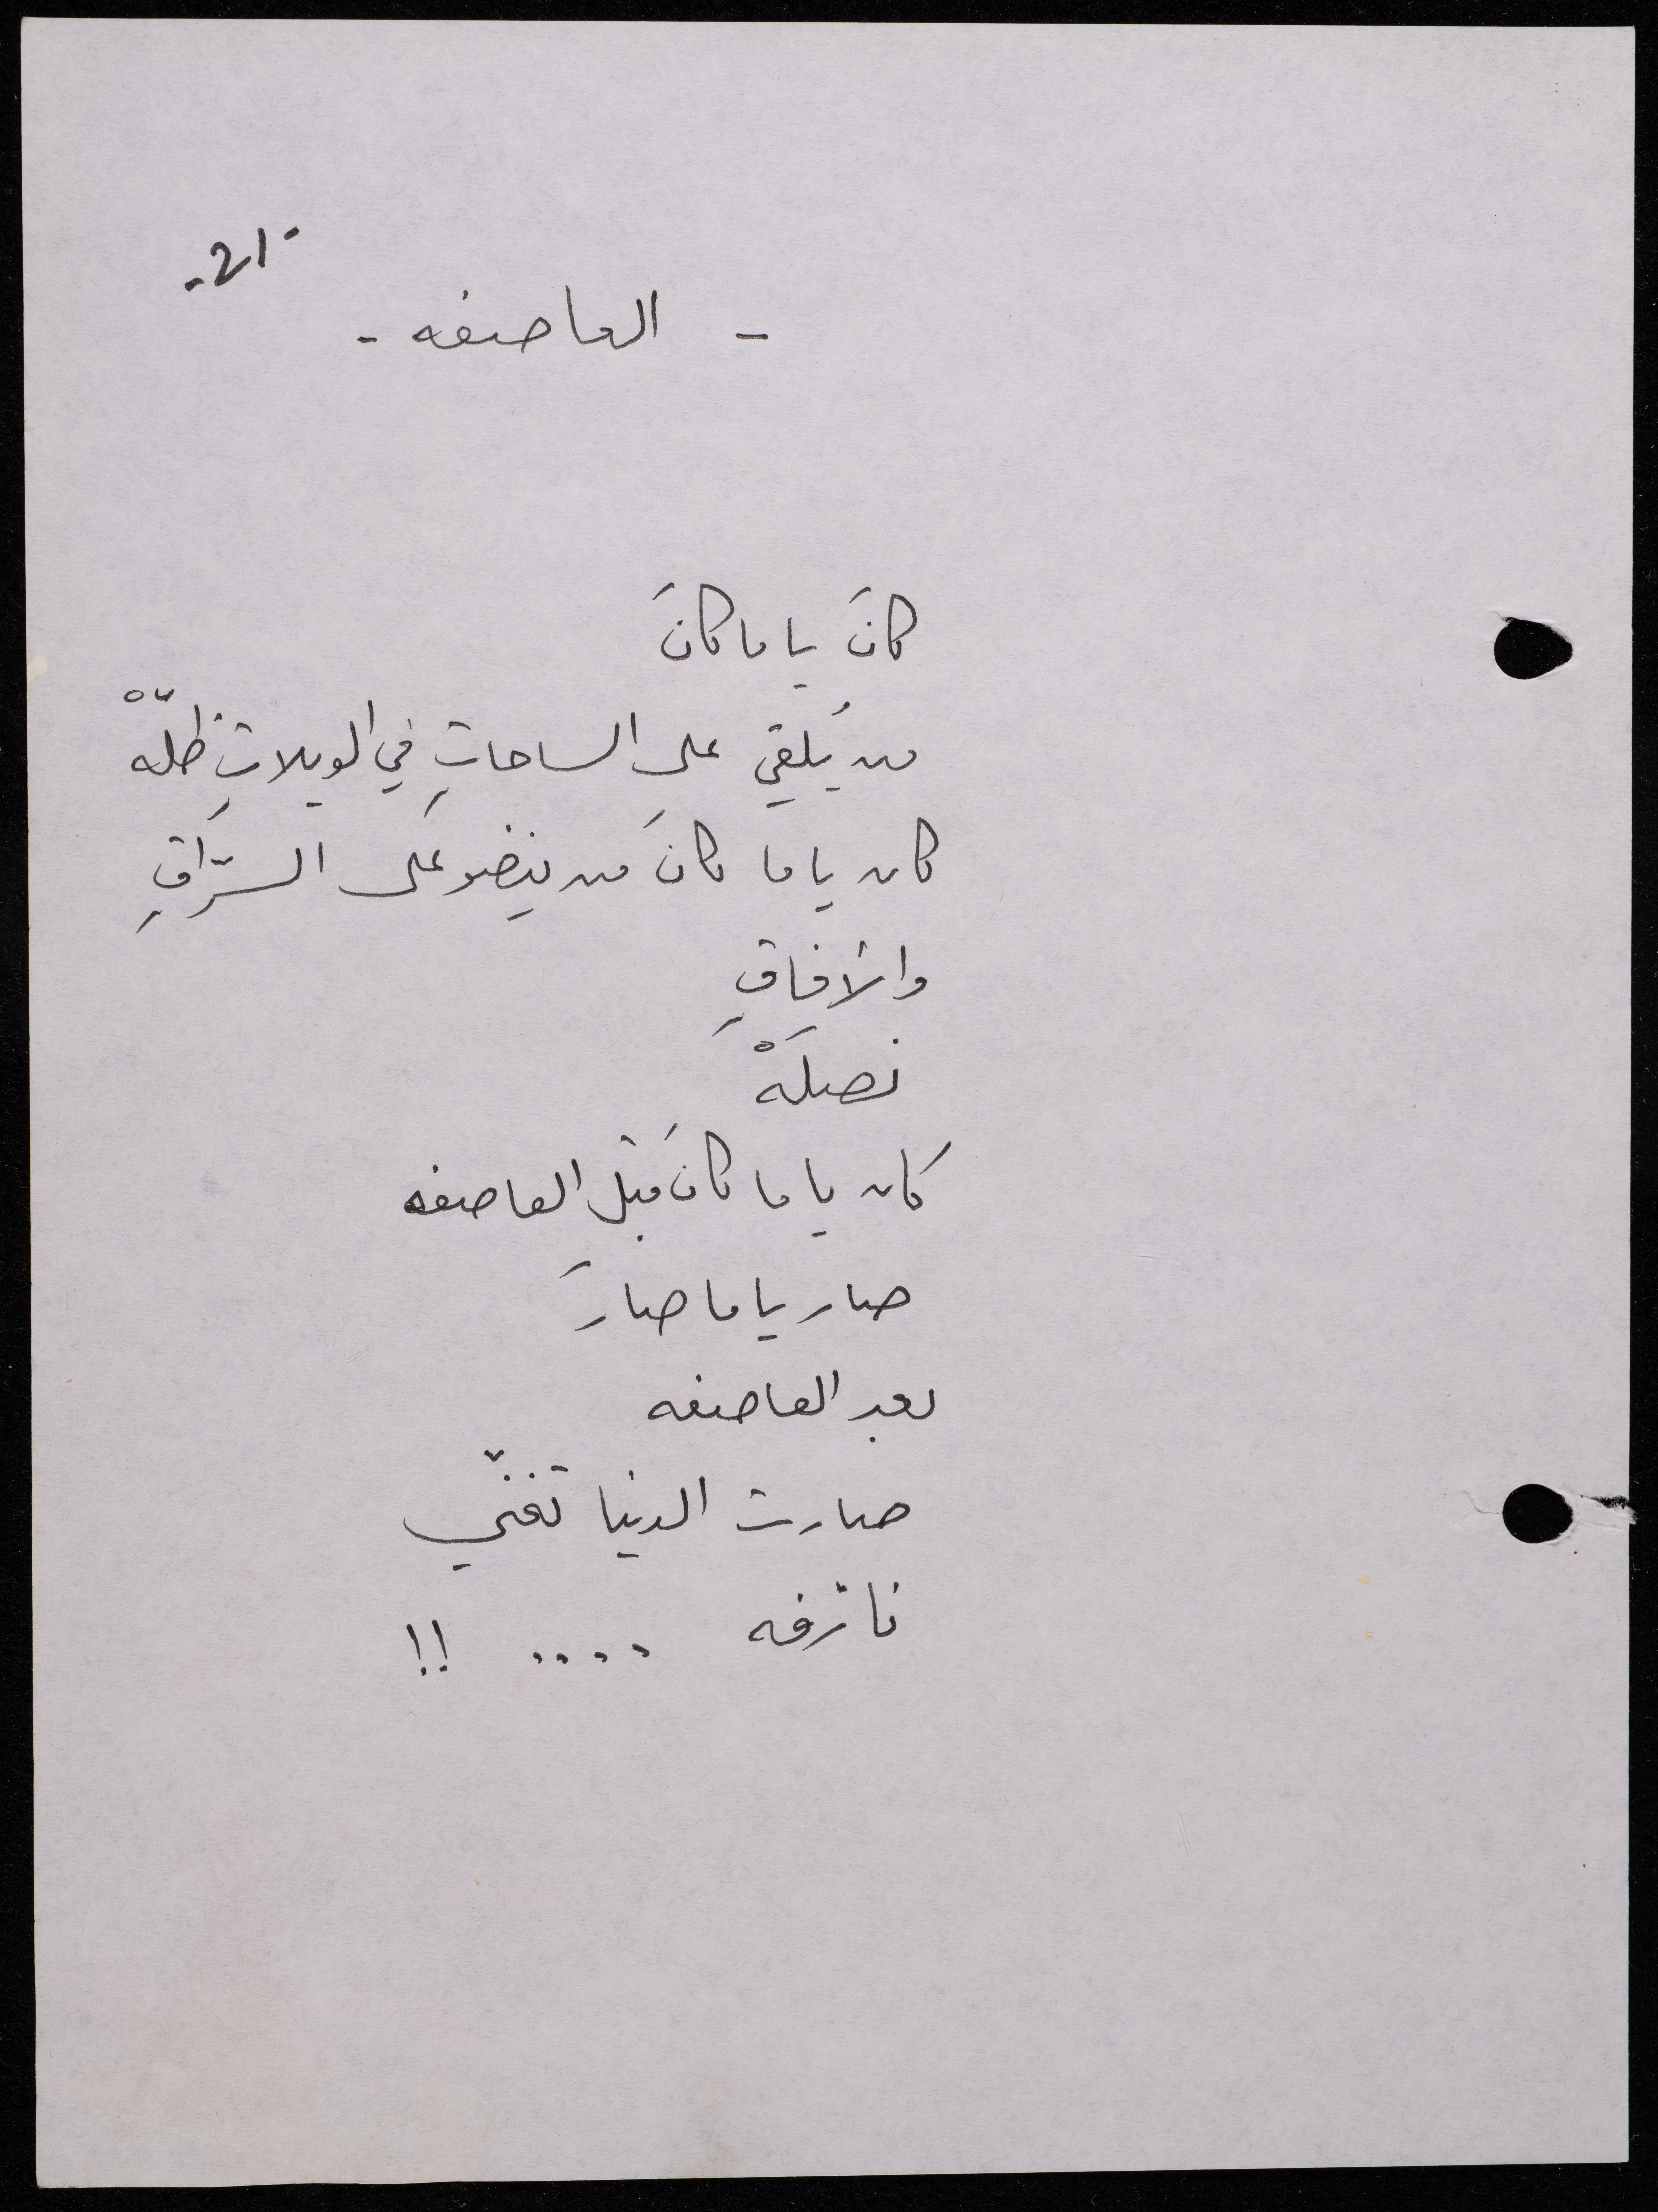 -21-
- العاصفه -
كانَ ياما كانَ
من يُلقي على الساحاتِ في الويلاتِ ظلّهْ
كان ياما كانَ من ينضو على السرّاقِ
والآفاقِ
نصلَهْ
كان ياما كانَ قبل العاصفه
صار ياما صارَ
بعد العاصفه
صارت الدنيا تغنّي
نازفه .... !!